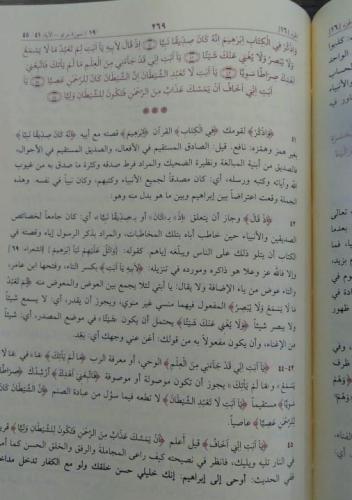 ٢٦٩
وَاذْكُرْ فِي الْكِتَابِ إِبْرَاهِيمَ إِنَّهُ كَانَ صِدِّيقًا نَبِيًّا ﴿٤١﴾ إِذْ قَالَ لِأَبِيهِ يَا أَبَتِ لِمَ تَعْبُدُ مَا لَا يَسْمَعُ
وَلَا يُبْصِرُ وَلَا يُغْنِي عَنْكَ شَيْئًا ﴿٤٢﴾ يَا أَبَتِ إِنِّي قَدْ جَاءَنِي مِنَ الْعِلْمِ مَا لَمْ يَأْتِكَ فَاتَّبِعْنِي
أَهْدِكَ صِرَاطًا سَوِيًّا ﴿٤٣﴾ يَا أَبَتِ لَا تَعْبُدِ الشَّيْطَانَ إِنَّ الشَّيْطَانَ كَانَ لِلرَّحْمَنِ عَصِيًّا ﴿٤٤﴾
يَا أَبَتِ إِنِّي أَخَافُ أَنْ يَمَسَّكَ عَذَابٌ مِنَ الرَّحْمَنِ فَتَكُونَ لِلشَّيْطَانِ وَلِيًّا ﴿٤٥﴾
٤١ ﴿وَاذْكُرْ﴾ لقومك ﴿فِي الْكِتَابِ﴾ القرآن ﴿إِبْرَاهِيمَ﴾ قصته مع أبيه ﴿إِنَّهُ كَانَ صِدِّيقًا نَبِيًّا﴾
بغير همز وهمزه: نافع، قيل: الصادق المستقيم في الأفعال، والصديق المستقيم في الأحوال،
فالصديق من أبنية المبالغة ونظيره الضحيك والمراد فرط صدقه وكثرة ما صدق به من غيوب
الله وآياته وكتبه ورسله، أي: كان مصدقاً لجميع الأنبياء وكتبهم، وكان نبياً في نفسه. وهذه
الجملة وقعت اعتراضاً بين إبراهيم وبين ما هو بدل منه وهو:
٤٢ ﴿إِذْ قَالَ﴾ وجاز أن يتعلق ﴿إِذْ﴾ بـ﴿كَانَ﴾ أو بـ﴿صِدِّيقًا نَبِيًّا﴾، أي: كان جامعاً لخصائص
الصديقين والأنبياء حين خاطب أباه بتلك المخاطبات، والمراد بذكر الرسول إياه وقصته في
الكتاب أن يتلو ذلك على الناس ويبلغه إياهم، كقوله: ﴿وَاتْلُ عَلَيْهِمْ نَبَأَ إِبْرَاهِيمَ﴾ [الشعراء: ٦٩]
وإلا فالله عز وعلا هو ذاكره ومورده في تنزيله: ﴿لِأَبِيهِ يَا أَبَتِ﴾ بكسر التاء، وفتحها ابن عامر،
والتاء عوض من ياء الإضافة ولا يقال: يا أبتي لئلا يجمع بين العوض والمعوض منه ﴿لِمَ تَعْبُدُ
مَا لَا يَسْمَعُ وَلَا يُبْصِرُ﴾ المفعول فيهما منسي غير منوي، ويجوز أن يقدر، أي: لا يسمع شيئاً
ولا يبصر شيئاً ﴿وَلَا يُغْنِي عَنْكَ شَيْئًا﴾ يحتمل أن يكون ﴿شَيْئًا﴾ في موضع المصدر، أي: شيئاً
من الإغناء، وأن يكون مفعولاً به من قولك: أغن عني وجهك أي: بعّد.
﴿يَا أَبَتِ إِنِّي قَدْ جَاءَنِي مِنَ الْعِلْمِ﴾ الوحي، أو معرفة الرب ﴿مَا لَمْ يَأْتِكَ﴾
يجوز أن تكون موصولة أو موصوفة ﴿فَاتَّبِعْنِي أَهْدِكَ﴾
مستقيماً ﴿يَا أَبَتِ لَا تَعْبُدِ الشَّيْطَانَ﴾ لا تطعه فيما سوّل من عبادة الصنم ﴿إِنَّ الشَّيْطَانَ
عاصياً.
٤٥ ﴿يَا أَبَتِ إِنِّي أَخَافُ﴾ قيل أعلم ﴿أَنْ يَمَسَّكَ عَذَابٌ مِنَ الرَّحْمَنِ فَتَكُونَ لِلشَّيْطَانِ وَلِيًّا﴾
في النار تليه ويليك، فانظر في نصيحته كيف راعى المجاملة والرفق والخلق الحسن كما
في الحديث: أوحى إلى إبراهيم: إنك خليلي حسن خلقك ولو مع الكفار تدخل